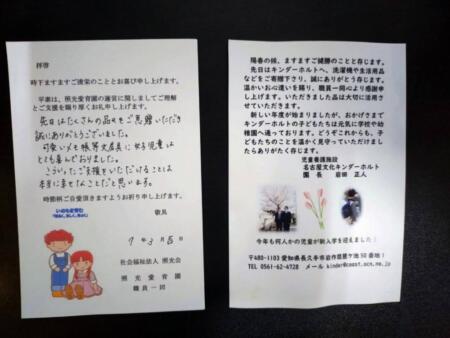 拝啓
時下ますますご清栄のこととお喜び申し上げます。
平素は、照光愛育園の運営に関しましてご理解
とご支援を賜り厚くお礼申し上げます。
先日はたくさんの品々をご恵贈いただき
誠にありがとうございました。
可愛いメモ帳等文房具に女子児童は
とても喜んでおりました。
こういったご支援をいただけることは
本当に幸せなことだと思います。
時節柄ご自愛頂きますようお祈り申し上げます。
敬具
いのちを育む
7年3月5日
社会福祉法人 照光会
照光愛育園
職員一同
陽春の候、ますますご健勝のことと存じます。
先日はキンダーホルトへ、洗濯機や生活用品
などをご寄贈下さり、誠にありがとう存じます。
温かいお心遣いを賜り、職員一同心より感謝申
し上げます。いただきました品は大切に活用さ
せていただきます。
新しい年度が始まりましたが、おかげさまで
キンダーホルトの子どもたちは元気に学校や幼
稚園へ通っております。どうぞこれからも、子
どもたちのことを温かく見守っていただけまし
たらありがたく存じます。
児童養護施設
名古屋文化キンダーホルト
園長 岩田 正人
今年も何人かの児童が新入学を迎えました！
〒480-1103 愛知県長久手市岩作琵琶ケ池50番地1
TEL 0561-62-4728 メール kinder@coast.ocn.ne.jp